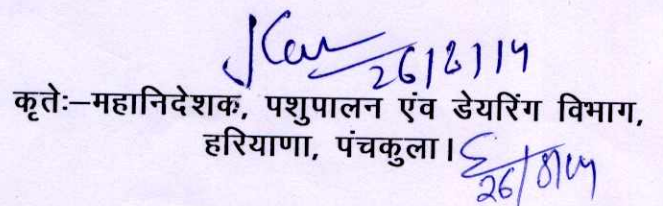 26/8/14
कृतेः–महानिदेशक, पशुपालन एंव डेयरिंग विभाग,
हरियाणा, पंचकुला।
26/8/14